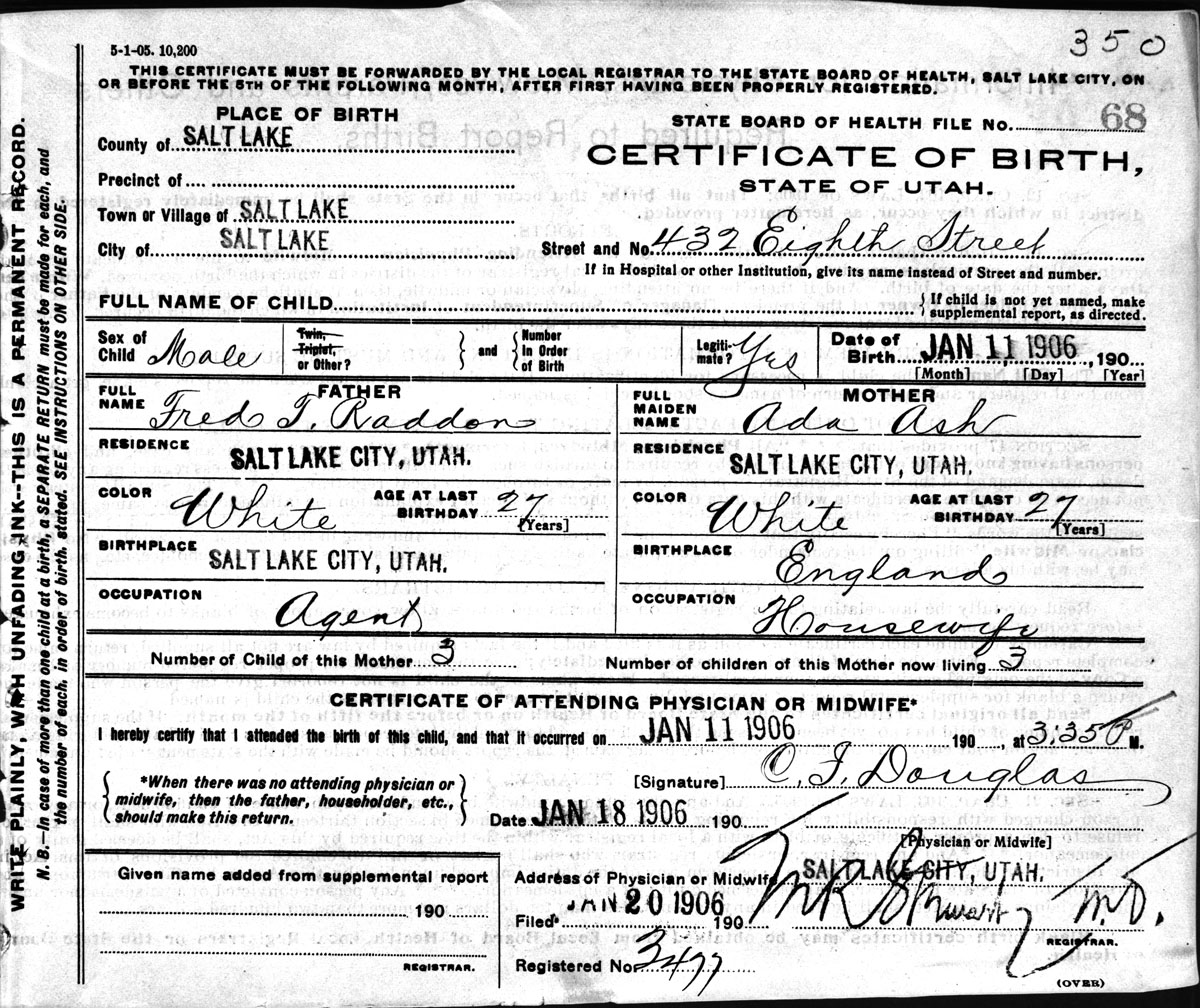 5-1-05. 10,200
350
THIS CERTIFICATE MUST BE FORWARDED BY THE LOCAL REGISTRAR TO THE STATE BOARD OF HEALTH, SALT LAKE CITY, ON
OR BEFORE THE 5TH OF THE FOLLOWING MONTH, AFTER FIRST HAVING BEEN PROPERLY REGISTERED.
PLACE OF BIRTH
STATE BOARD OF HEALTH FILE No. 68
County of SALT LAKE
CERTIFICATE OF BIRTH,
STATE OF UTAH.
Precinct of
Town or Village of SALT LAKE
City of SALT LAKE
Street and No. 432 Eighth Street
If in Hospital or other Institution, give its name instead of Street and number.
FULL NAME OF CHILD
If child is not yet named, make
supplemental report, as directed.
Sex of
Child Male
Twin,
Triplet,
or Other?
and
Number
in Order
of Birth
Legiti-
mate? Yes
Date of
Birth JAN 11 1906, 190
[Month] [Day] [Year]
FATHER
FULL
NAME Fred T. Raddon
MOTHER
FULL
MAIDEN
NAME Ada Ash
RESIDENCE
SALT LAKE CITY, UTAH.
RESIDENCE
SALT LAKE CITY, UTAH.
COLOR White
AGE AT LAST
BIRTHDAY 27
[Years]
COLOR White
AGE AT LAST
BIRTHDAY 27
[Years]
BIRTHPLACE
SALT LAKE CITY, UTAH.
BIRTHPLACE
England
OCCUPATION
Agent
OCCUPATION
Housewife
Number of Child of this Mother 3
Number of children of this Mother now living 3
CERTIFICATE OF ATTENDING PHYSICIAN OR MIDWIFE*
I hereby certify that I attended the birth of this child, and that it occurred on JAN 11 1906 190, at 3.35 P M.
*When there was no attending physician or
midwife, then the father, householder, etc.,
should make this return.
[Signature] C. F. Douglas
Date JAN 18 1906 190
[Physician or Midwife]
Given name added from supplemental report
190
REGISTRAR.
Address of Physician or Midwife SALT LAKE CITY, UTAH.
Filed JAN 20 1906 190
M.D.
REGISTRAR.
Registered No. 3477
(OVER)
WRITE PLAINLY, WITH UNFADING INK--THIS IS A PERMANENT RECORD.
N.B.--In case of more than one child at a birth, a SEPARATE RETURN must be made for each, and
the number of each, in order of birth, stated. SEE INSTRUCTIONS ON OTHER SIDE.